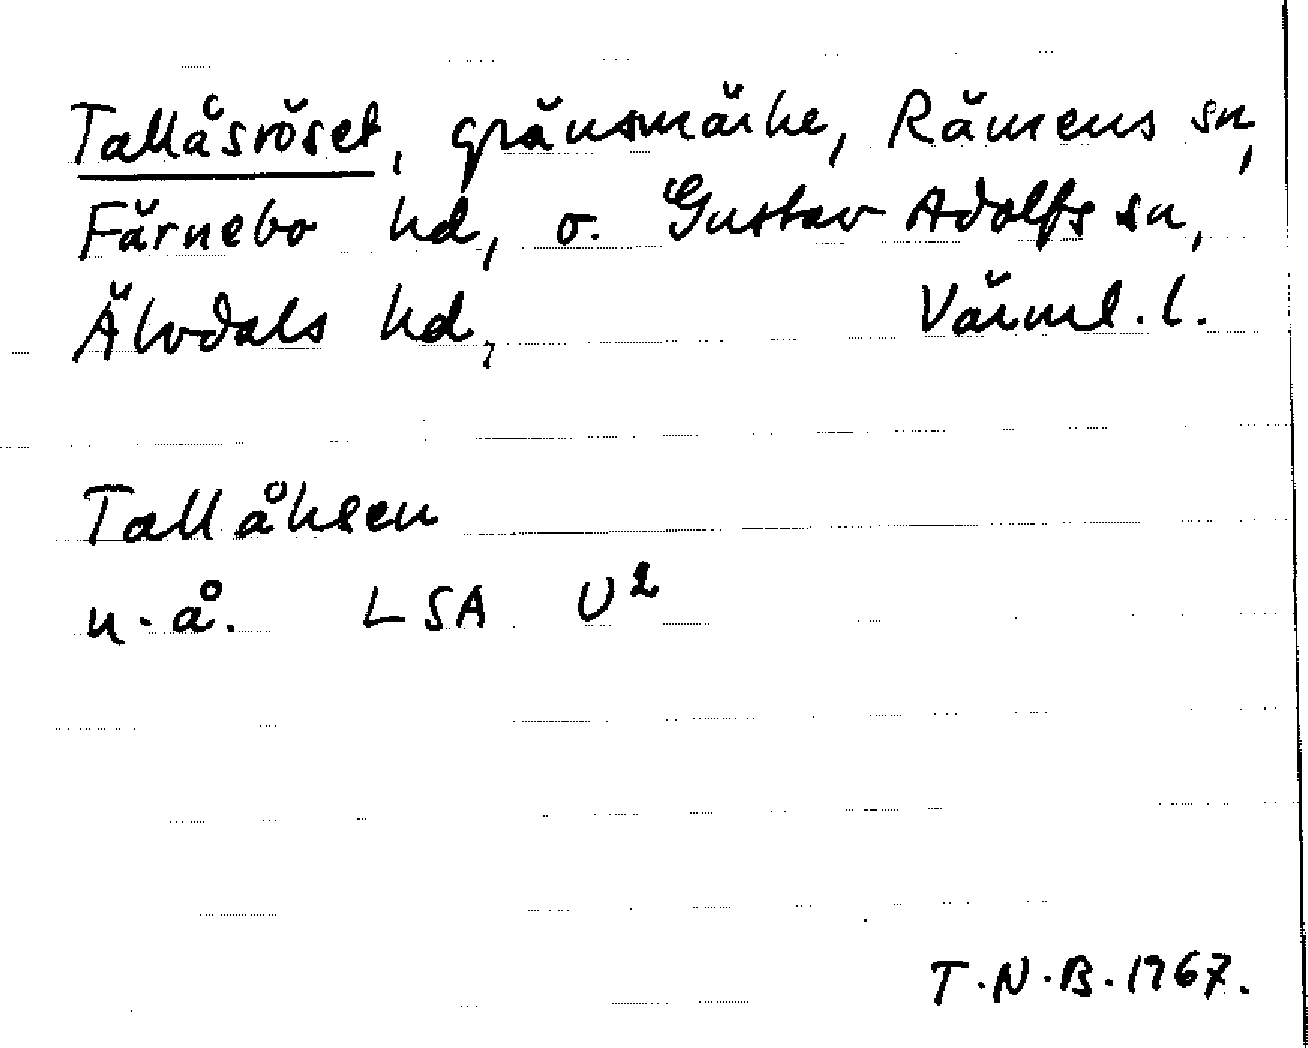 Tallåsröset, gränsmärke, Rämens sn,
Färnebo hd, o. Gustav Adolfs sn,
Älvdals hd, Värml. l.
Tallåhsen
u.å. LSA U²
T.N.B.1967.